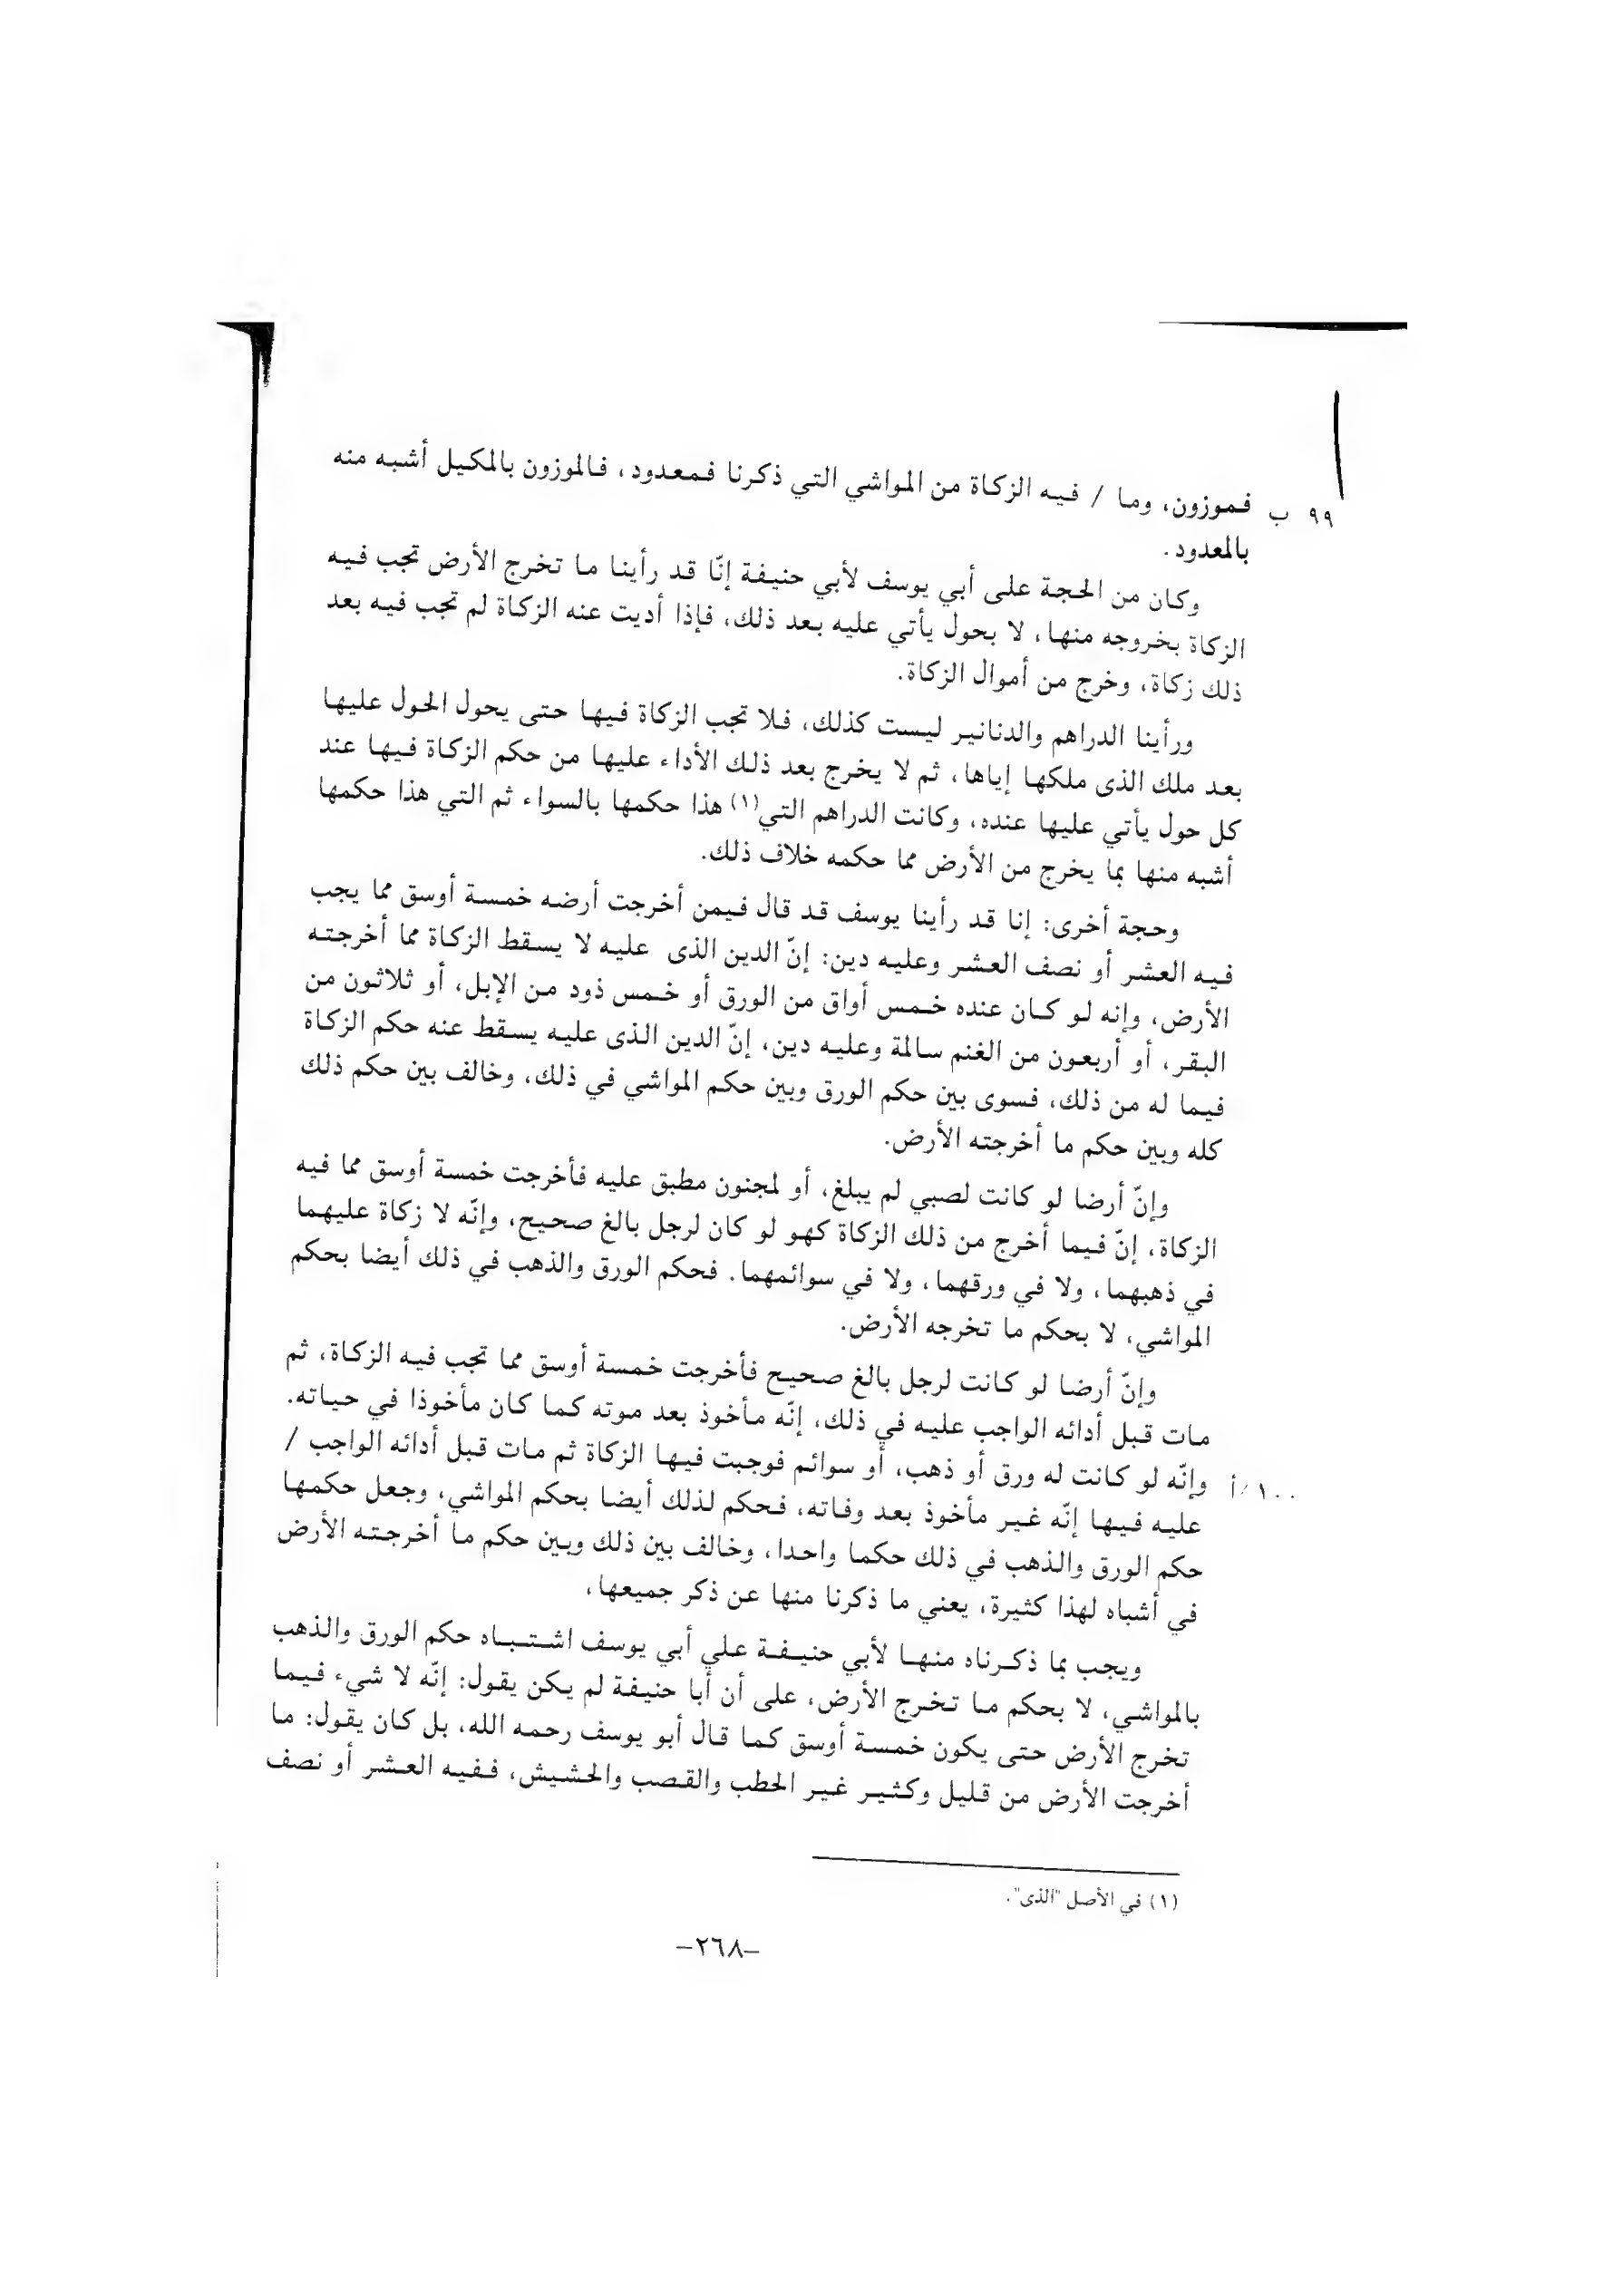 ٩٩ ب فموزون، وما / فيه الزكاة من المواشي التي ذكرنا فمعدود، فالموزون بالمكيل أشبه منه
بالمعدود.
وكان من الحجة على أبي يوسف لأبي حنيفة إنّا قد رأينا ما تخرج الأرض تجب فيه
الزكاة بخروجه منها، لا بحول يأتي عليه بعد ذلك، فإذا أديت عنه الزكاة لم تجب فيه بعد
ذلك زكاة، وخرج من أموال الزكاة.
ورأينا الدراهم والدنانير ليست كذلك، فلا تجب الزكاة فيها حتى يحول الحول عليها
بعد ملك الذى ملكها إياها، ثم لا يخرج بعد ذلك الأداء عليها من حكم الزكاة فيها عند
كل حول يأتي عليها عنده، وكانت الدراهم التي(١) هذا حكمها بالسواء ثم التي هذا حكمها
أشبه منها بما يخرج من الأرض مما حكمه خلاف ذلك.
وحجة أخرى: إنا قد رأينا يوسف قد قال فيمن أخرجت أرضه خمسة أوسق مما يجب
فيه العشر أو نصف العشر وعليه دين: إنّ الدين الذى عليه لا يسقط الزكاة مما أخرجته
الأرض، وإنه لو كان عنده خمس أواق من الورق أو خمس ذود من الإبل، أو ثلاثون من
البقر، أو أربعون من الغنم سالمة وعليه دين، إنّ الدين الذى عليه يسقط عنه حكم الزكاة
فيما له من ذلك، فسوى بين حكم الورق وبين حكم المواشي في ذلك، وخالف بين حكم ذلك
كله وبين حكم ما أخرجته الأرض.
وإنّ أرضا لو كانت لصبي لم يبلغ، أو لمجنون مطبق عليه فأخرجت خمسة أوسق مما فيه
الزكاة، إنّ فيما أخرج من ذلك الزكاة كهو لو كان لرجل بالغ صحيح، وإنّه لا زكاة عليهما
في ذهبهما، ولا في ورقهما، ولا في سوائمهما. فحكم الورق والذهب في ذلك أيضا بحكم
المواشي، لا بحكم ما تخرجه الأرض.
وإنّ أرضا لو كانت لرجل بالغ صحيح فأخرجت خمسة أوسق مما تجب فيه الزكاة، ثم
مات قبل أدائه الواجب عليه في ذلك، إنّه مأخوذ بعد موته كما كان مأخوذا في حياته.
١٠٠/أ وإنّه لو كانت له ورق أو ذهب، أو سوائم فوجبت فيها الزكاة ثم مات قبل أدائه الواجب /
عليه فيها إنّه غير مأخوذ بعد وفاته، فحكم لذلك أيضا بحكم المواشي، وجعل حكمها
حكم الورق والذهب في ذلك حكما واحدا، وخالف بين ذلك وبين حكم ما أخرجته الأرض
في أشباه لهذا كثيرة، يعني ما ذكرنا منها عن ذكر جميعها،
ويجب بما ذكرناه منها لأبي حنيفة علي أبي يوسف اشتباه حكم الورق والذهب
بالمواشي، لا بحكم ما تخرج الأرض، على أن أبا حنيفة لم يكن يقول: إنّه لا شيء فيما
تخرج الأرض حتى يكون خمسة أوسق كما قال أبو يوسف رحمه الله، بل كان يقول: ما
أخرجت الأرض من قليل وكثير غير الحطب والقصب والحشيش، ففيه العشر أو نصف
(١) في الأصل "الذى".
-٢٦٨-